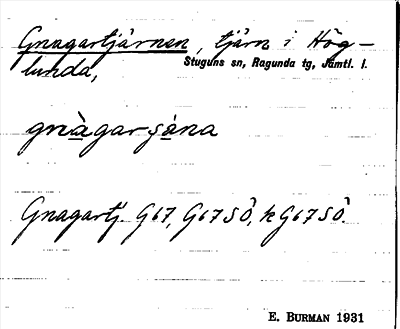 Gnagartjärnen, tjärn i Hög-
lunda, Stuguns sn, Ragunda tg, Jämtl. l.
gnàgarşàna
Gnagartj. G67, G67SÖ, kG67SÖ.
E. BURMAN 1931